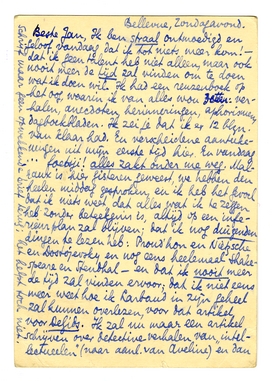 Bellevue, Zondagavond.
Beste Jan, Ik ben straal ontmoedigd en
geloof vandaag dat ik tot niets meer kom! —
dat ik geen talent heb niet alleen, maar ook
nooit meer de tijd zal vinden om te doen
wat ik doen wil. Ik had een reuzenboek op
het oog, waarin ik van alles wou zetten: ver-
halen, anecdoten, herinneringen, aphorismen,
dagboekbladen. Ik zei je dat ik er 12 blzn.
van klaar had. En verscheidene aanteeke-
ningen uit mijn eerste tijd hier. En vandaag
... foetsji! alles zakt onder me weg. Mal-
raux is hier gisteren geweest, we hebben den
heelen middag gesproken, en ik heb het gevoel
dat ik niets weet, dat alles wat ik te zeggen
heb zonder beteekenis is, altijd op een infe-
rieur plan zal blijven; dat ik nog duizenden
dingen te lezen heb: Proudhon en Nietzsche
en Dostojevsky en nog eens heelemaal Shake-
speare en Stendhal — en dat ik nooit meer
de tijd zal vinden ervoor; dat ik niet eens
meer weet hoe ik Larbaud in zijn geheel
zal kunnen overlezen, voor dat artikel
voor Delfts. Ik zal nu maar een artikel
schrijven over detective-verhalen, van intel-
lectueelen (naar aanl. van Aveline) en dan